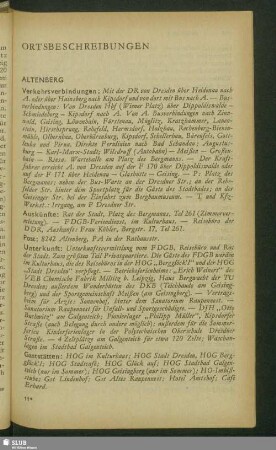 ORTSBESCHREIBUNGEN
ALTENBERG
Verkehrsverbindungen: Mit der DR von Dresden über Heidenau nach
A. oder über Hainsberg nach Kipsdorf und von dort mit Bus nach A. — Bus-
verbindungen: Von Dresden Hbf (Wiener Platz) über Dippoldiswalde –
Schmiedeberg – Kipsdorf nach A. Von A. Busverbindungen nach Zinn-
wald, Geising, Löwenhain, Fürstenau, Müglitz, Kratzhammer, Lauen-
stein, Hirschsprung, Rehefeld, Hermsdorf, Holzhau, Rechenberg-Bienen-
mühle, Olbernhau, Oberbärenburg, Kipsdorf, Schellerhau, Bärenfels,
und Pirna; Direkte Fernlinien nach Bad Schandau; Augustus-
burg – Karl-Marx-Stadt;
Wartehalle am Platz des Bergmanns. — Der Kraft-
fahrer erreicht A. von Dresden auf der F 170 über Dippoldiswalde oder
auf der F 171 über Heidenau – Glashütte – Geising. — P: Platz des
Bergmanns; neben der Bus-Warte an der Dresdner Str.; an der Rehe-
felder Str. hinter dem Sportplatz für die Gäste des Stadtbades; an der
Geisinger Str. bei der Einfahrt zum Bergbaumuseum. — T, und Kfz-
Werkst.: am P Dresdner Str.
Auskünfte: Rat der Stadt, Platz des Bergmanns, Tel 261 (Zimmerver-
mittlung). — FDGB-Feriendienst, im Kulturhaus. — Reisebüro der
DDR, Auskunft: Frau Köhler, Bergstr. 17, Tel 261.
Post: 8242 Altenberg, PA in der Rathausstr.
Unterkunft: Unterkunftsvermittlung vom FDGB, Reisebüro und Rat
der Stadt, Zum größten Teil Privatquartiere. Die Gäste des FDGB werden
im Kulturhaus, die des Reisebüros in der HOG „Bergglöckl" und der HOG
„Stadt Dresden" verpflegt. — Betriebsferienheime: „Erich Weinert" des
VEB Chemische Fabrik Miltitz b. Leipzig, Haus Bergwacht der TU
Dresden; außerdem Wanderhütten des DKB (Tächhaude am Geising-
berg) und der Sportgemeinschaft Meißen (am Geisingberg). — Vertrags-
heim für Ärzte: Sonnenhof, Hinter dem Sanatorium Raupennest. —
Sanatorium Raupennest für Unfall- und Sportgeschädigte. — DJH „Otto
Buchwitz" am Galgenteich; Ferienlager „Philipp Müller", Kipsdorfer
Straße (auch Belegung durch andere möglich); außerdem für die Sommer-
ferien Kinderferienlager in der Polytechnischen Oberschule Dresdner
Straße. — 4 Zeltplätze am Galgenteich für etwa 120 Zelte; Waschan-
lagen im Stadtbad Galgenteich.
Gaststätten: HOG im Kulturhaus; HOG Stadt Dresden; HOG Berg-
glöck'l; HOG Stadtcafé; HOG Glück auf; HOG Stadtbad Galgen-
teich (nur im Sommer); HOG Geisingberg (nur im Sommer); HO-Imbiß-
stube; Gst Lindenhof; Gst Altes Raupennest; Hotel Amtshof; Café
Erhard.